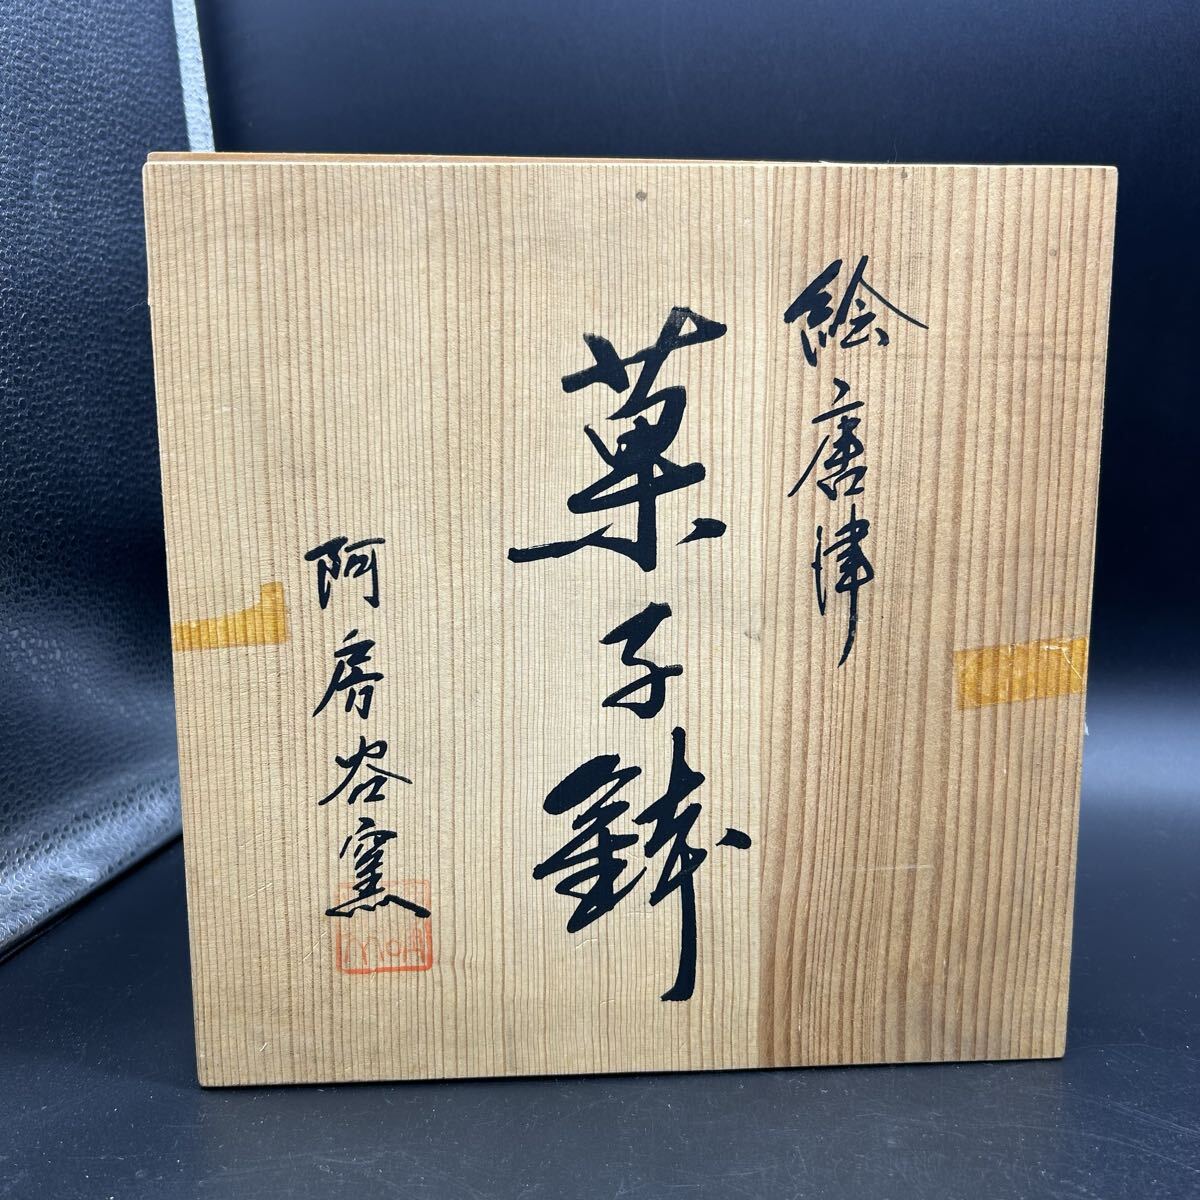 絵唐津
菓子鉢
阿房谷窯
MOA